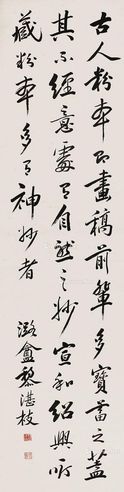 古人粉本即畫稿前輩多寶畜之蓋
其不經意處有自然之妙宣和紹興所
藏粉本多有神妙者
潞盦黎湛枝